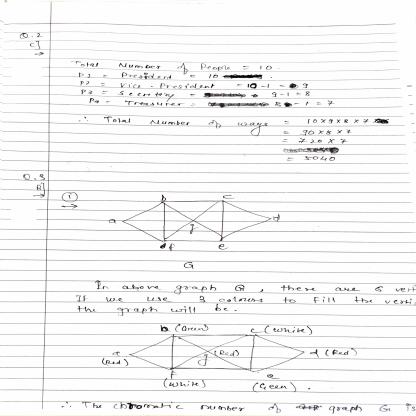 Q.2
C]
Total Number of People = 10.
P1 = President = 10
P2 = Vice - President = 10 - 1 = 9
P3 = Secretary = 9 - 1 = 8
P4 = Treasurer = 8 - 1 = 7
∴ Total Number of ways = 10 × 9 × 8 × 7
= 90 × 8 × 7
= 720 × 7
= 5040
Q.3
B]
①
b c
a g d
f e
G
In above graph G, there are 6 verti
If we use 3 colours to fill the verti
the graph will be.
b (Green) c (White)
a (Red) g (Red) d (Red)
f (White) e (Green).
∴ The chromatic number of graph G is